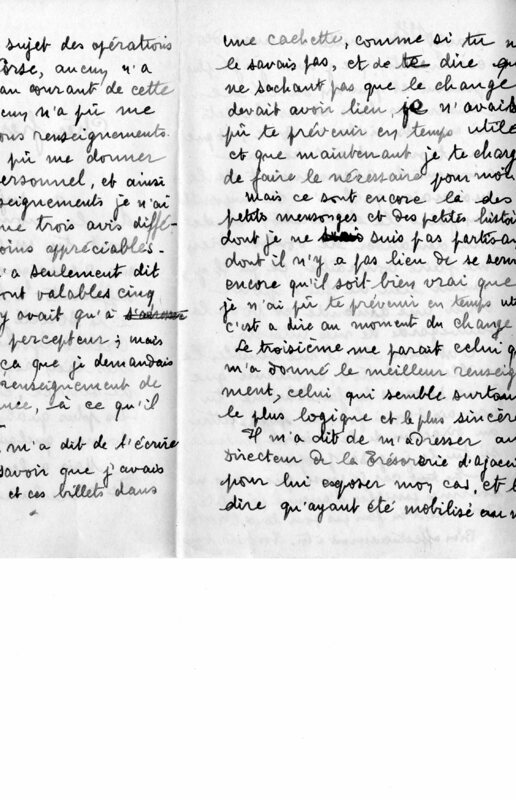 sujet des opérations
Corse, aucun n'a
au courant de cette
cun n'a pû me
ons renseignements.
pû me donner
ersonnel, et ainsi
seignements je n'ai
ue trois avis diffé-
oins appréciables.
'a seulement dit
ont valables cinq
y avait qu'à s'adresser
percepteur ; mais
ça que je demandais
renseignement de
nce, là ce qu'il
m'a dit de t'écrire
savoir que j'avais
et ces billets dans
une cachette, comme si tu n
le savais pas, et de te dire qu
ne sachant pas que le change
devait avoir lieu, je n'avais
pû te prévenir en temps utile
et que maintenant je te charg
de faire le nécessaire pour moi.
Mais ce sont encore là des
petits mensonges et des petites histoi
dont je ne suis pas partisan
dont il n'y a pas lieu de se serv
encore qu'il soit bien vrai que
je n'ai pû te prévenir en temps ut
c'est a dire au moment du change
Le troisième me parait celui q
m'a donné le meilleur renseig
ment, celui qui semble surtou
le plus logique et le plus sincèr
Il m'a dit de m'adresser au
Directeur de la Trésorerie d'Ajacci
pour lui exposer mon cas, et l
dire qu'ayant été mobilisé au m